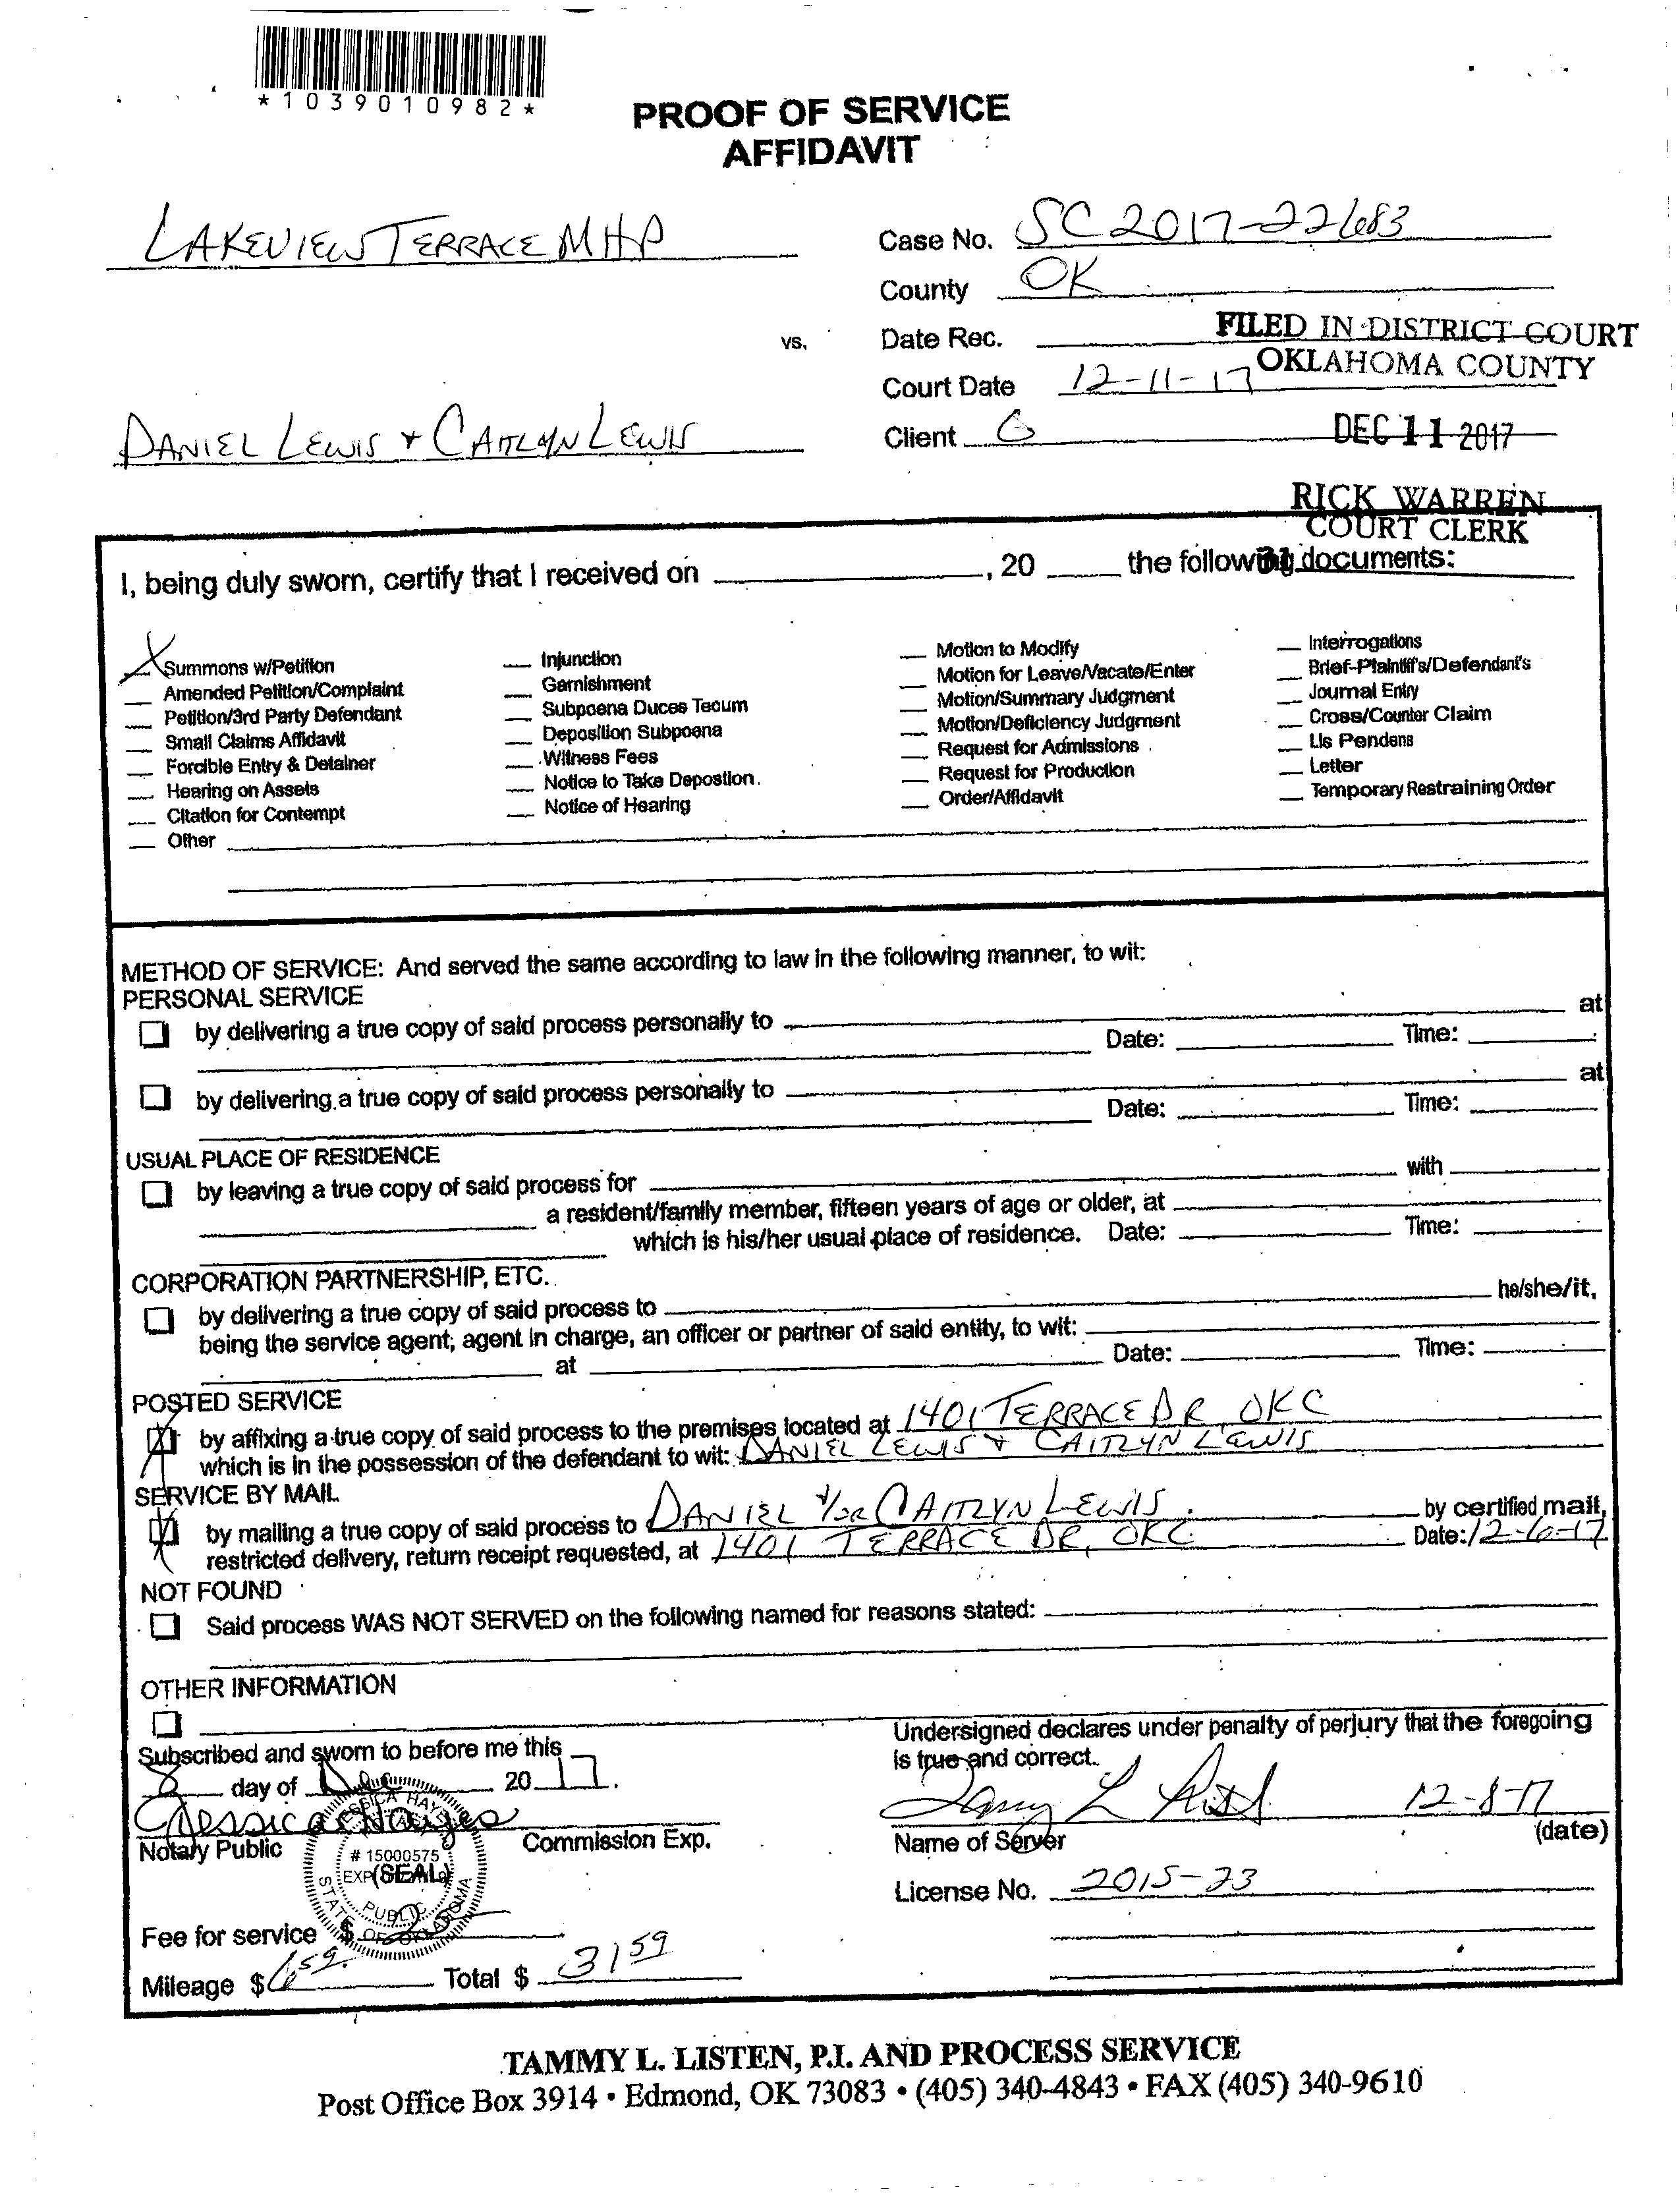 *1039010982*
PROOF OF SERVICE
AFFIDAVIT
LAKEVIEW TERRACE MHP
Case No. SC 2017-22683
County OK
vs.
Date Rec.
FILED IN DISTRICT COURT
OKLAHOMA COUNTY
Court Date 12-11-17
DANIEL LEWIS + CAITLYN LEWIS
Client G
DEC 11 2017
RICK WARREN
COURT CLERK
31
I, being duly sworn, certify that I received on , 20 the following documents:
X Summons w/Petition
Amended Petition/Complaint
Petition/3rd Party Defendant
Small Claims Affidavit
Forcible Entry & Detainer
Hearing on Assets
Citation for Contempt
Other
Injunction
Garnishment
Subpoena Duces Tecum
Deposition Subpoena
Witness Fees
Notice to Take Depostion.
Notice of Hearing
Motion to Modify
Motion for Leave/Vacate/Enter
Motion/Summary Judgment
Motion/Deficiency Judgment
Request for Admissions
Request for Production
Order/Affidavit
Interrogations
Brief-Plaintiff's/Defendant's
Journal Entry
Cross/Counter Claim
Lis Pendens
Letter
Temporary Restraining Order
METHOD OF SERVICE: And served the same according to law in the following manner, to wit:
PERSONAL SERVICE
by delivering a true copy of said process personally to at
Date: Time:
by delivering a true copy of said process personally to at
Date: Time:
USUAL PLACE OF RESIDENCE
by leaving a true copy of said process for with
a resident/family member, fifteen years of age or older, at
which is his/her usual place of residence. Date: Time:
CORPORATION PARTNERSHIP, ETC.
by delivering a true copy of said process to he/she/it,
being the service agent, agent in charge, an officer or partner of said entity, to wit:
at Date: Time:
POSTED SERVICE
X by affixing a true copy of said process to the premises located at 1401 TERRACE DR, OKC
which is in the possession of the defendant to wit: DANIEL LEWIS + CAITLYN LEWIS
SERVICE BY MAIL
X by mailing a true copy of said process to DANIEL +/OR CAITLYN LEWIS by certified mail,
restricted delivery, return receipt requested, at 1401 TERRACE DR, OKC Date: 12-6-17
NOT FOUND
Said process WAS NOT SERVED on the following named for reasons stated:
OTHER INFORMATION
Subscribed and sworn to before me this
8 day of Dec 2017.
Jessica Hayes
Notary Public (SEAL) Commission Exp.
JESSICA HAYES
# 15000575
EXP
PUBLIC
STATE OF OKLAHOMA
Undersigned declares under penalty of perjury that the foregoing
is true and correct.
12-8-17
Name of Server (date)
License No. 2015-23
Fee for service $
Mileage $ 6 59 Total $ 31 59
TAMMY L. LISTEN, P.I. AND PROCESS SERVICE
Post Office Box 3914 • Edmond, OK 73083 • (405) 340-4843 • FAX (405) 340-9610